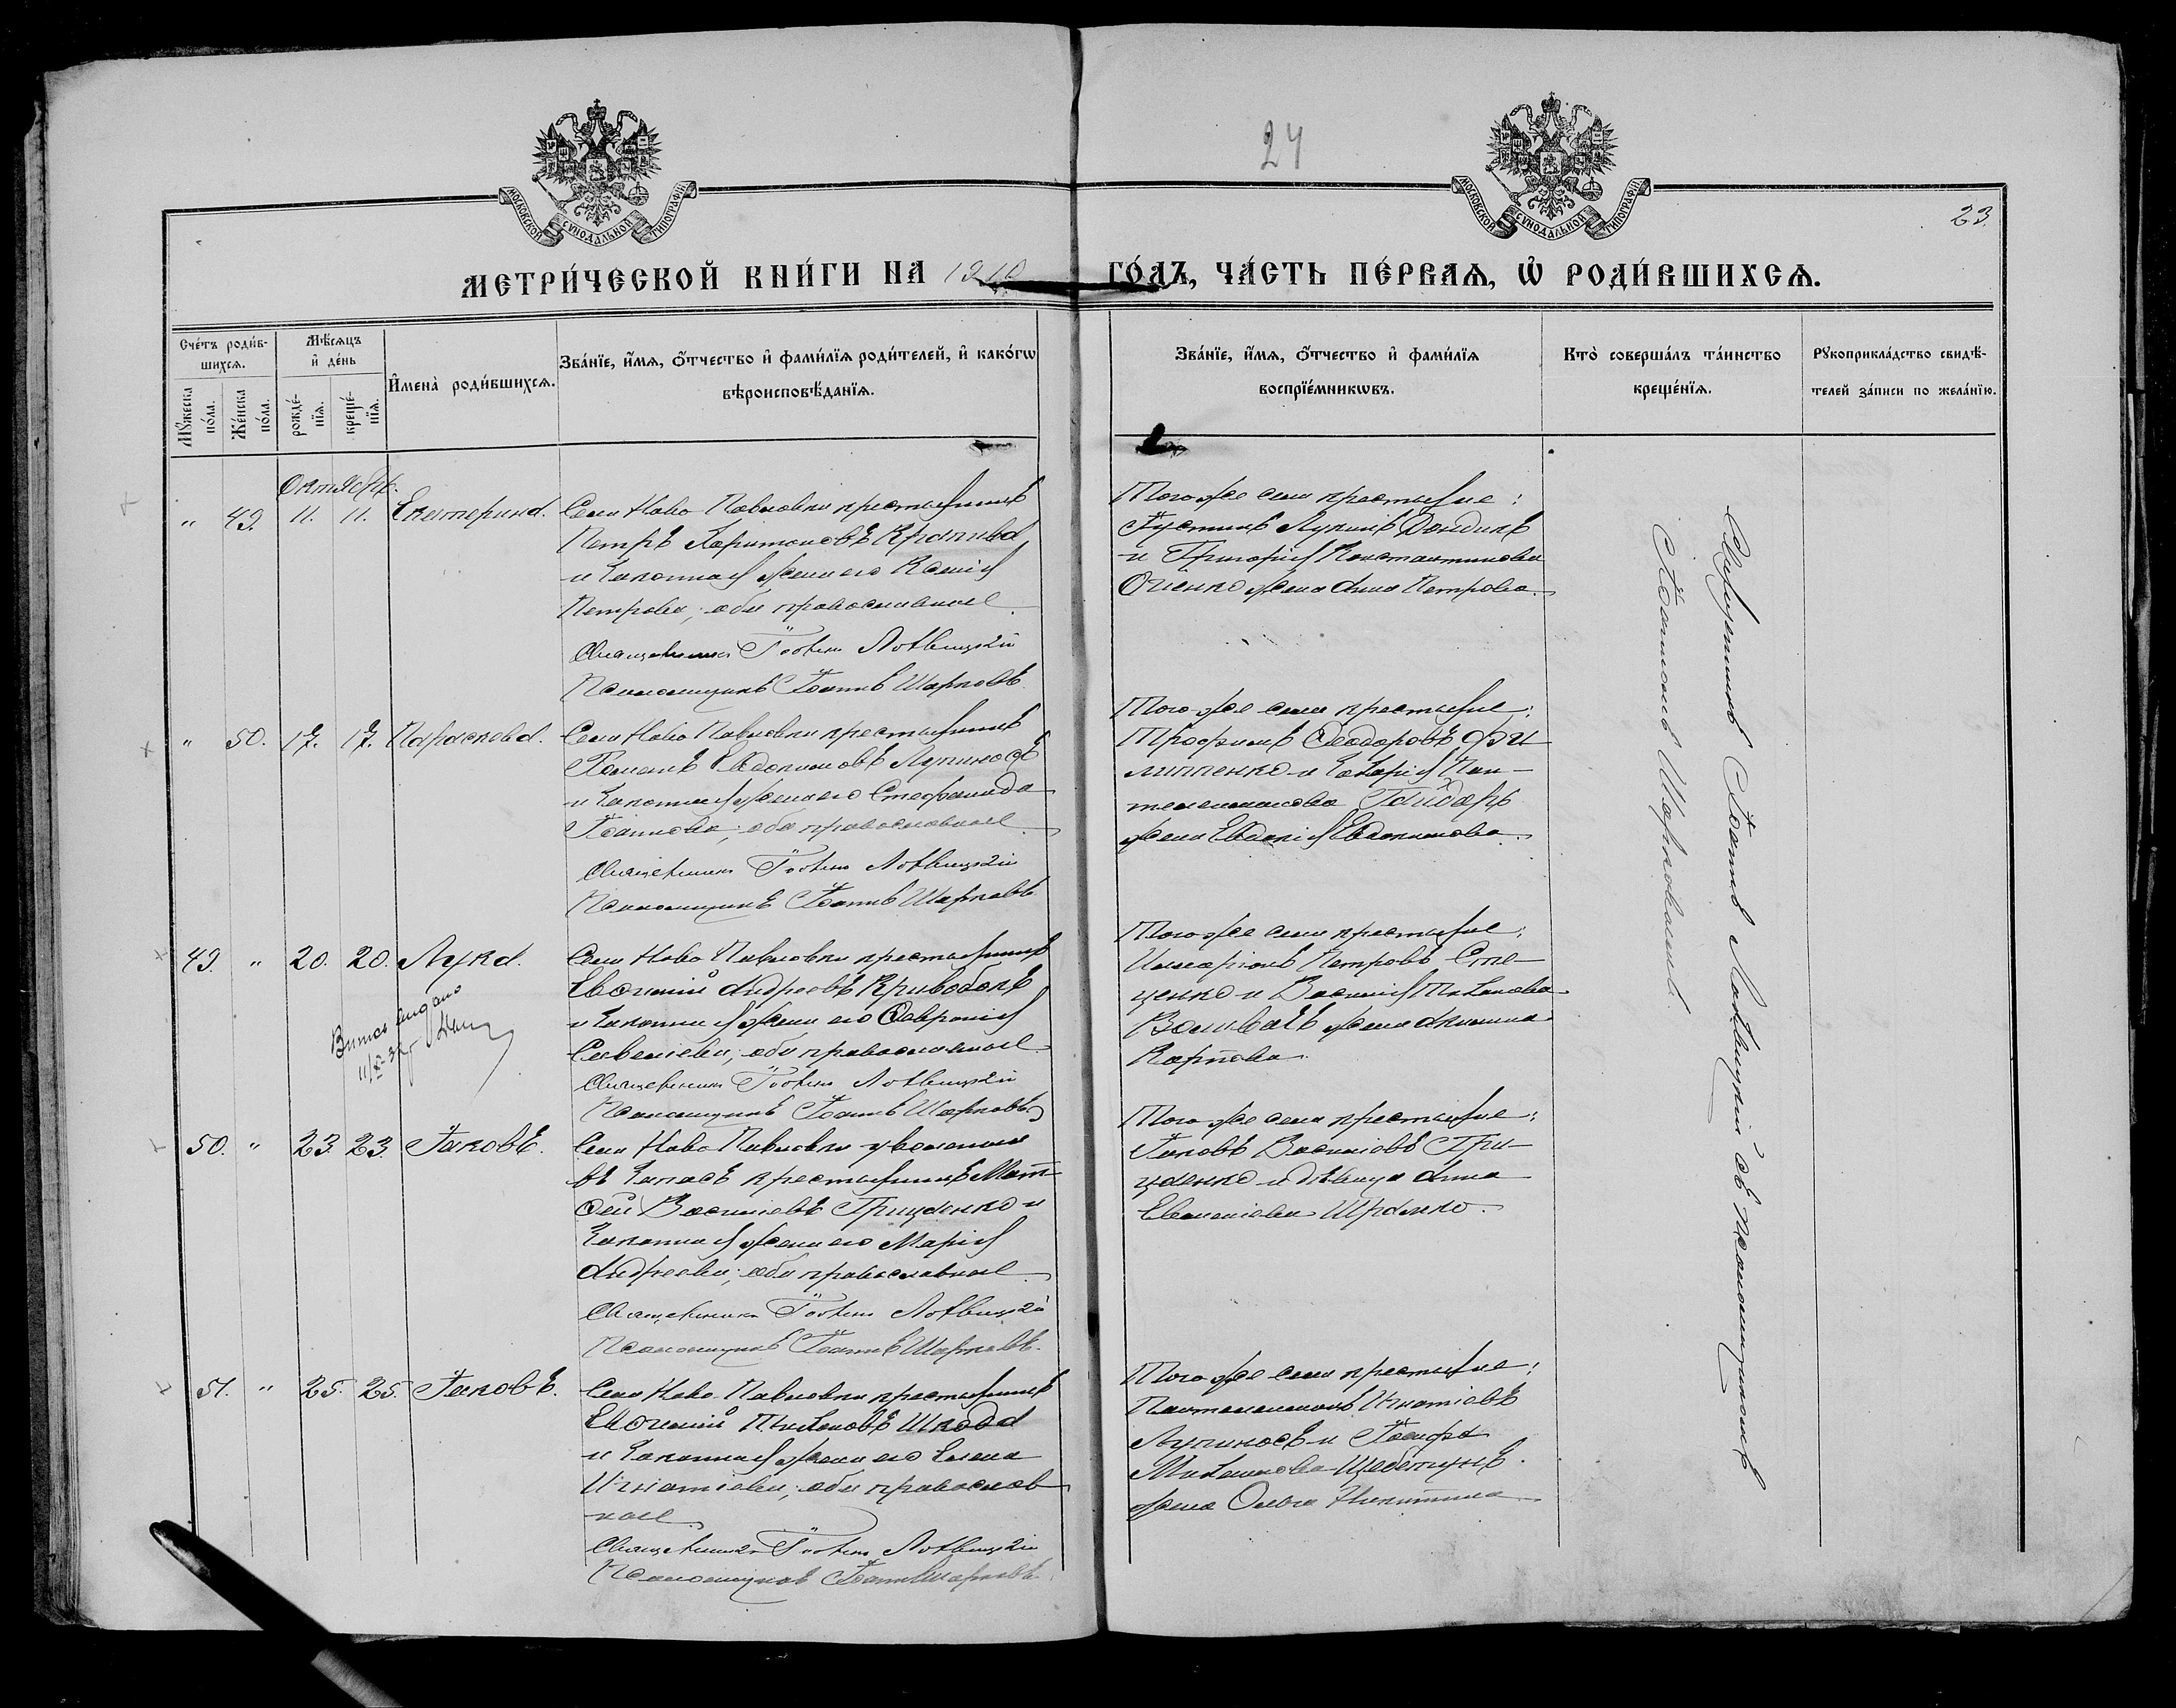 24
23.
МОСКОВСКОЙ СѴНОДАЛЬНОЙ ТИПОГРАФІИ
МОСКОВСКОЙ СѴНОДАЛЬНОЙ ТИПОГРАФІИ
МЕТРИ́ЧЕСКОЙ КНИ́ГИ НА 1910 ГО́ДЪ, ЧА́СТЬ ПЕ́РВАѦ, Ѡ҆ РОДИ́ВШИХСѦ.
Сче́тъ роди́в-
шихсѧ.
Мꙋ́жеска по́ла.
Же́нска по́ла.
Мѣ́сѧцъ
и҆ де́нь
рожде́-
нїѧ.
креще́-
нїѧ.
И҆мена̀ роди́вшихсѧ.
Зва́нїе, и҆́мѧ, ѻ҆́тчество и҆ фами́лїѧ роди́телей, и҆ како́гѡ
вѣроисповѣ́данїѧ.
Зва́нїе, и҆́мѧ, ѻ҆́тчество и҆ фами́лїѧ
воспрїе́мникѡвъ.
Кто̀ соверша́лъ та́инство
креще́нїѧ.
Рꙋкоприкла́дство свидѣ́-
телей за́писи по жела́нїю.
Октябрь.
" 49. 11. 11. Екатерина.
Села Ново-Павловки крестьянинъ
Петръ Харитоновъ Крапива
и законная жена его Ксенія
Петрова; оба православные.
Священникъ Іоаннъ Лотвицкій
Псаломщикъ Іоаннъ Шарковъ
Того же села крестьяне:
Іустинъ Лукинъ Дондикъ
и Григорія Константинова
Огіенко жена Анна Петрова.
" 50. 17. 17. Параскева.
Села Ново-Павловки крестьянинъ
Романъ Евдокимовъ Лупиносъ
и законная жена его Стефанида
Іоаннова; оба православные.
Священникъ Іоаннъ Лотвицкій
Псаломщикъ Іоаннъ Шарковъ
Того-же села крестьяне:
Трофимъ Ѳеодоровъ Фи-
липпенко и Захарія Пан-
телеимонова Гайдаръ
жена Евдокія Евдокимова.
49. " 20. 20. Лука.
Випис видано
Села Ново-Павловки крестьянинъ
Евѳимій Андреевъ Кривобокъ
и законная жена его Ѳевронія
Савеліева; оба православные.
Священникъ Іоаннъ Лотвицкій
Псаломщикъ Іоаннъ Шарковъ
Того же села крестьяне:
Иларіонъ Петровъ Сте-
ценко и Василія
жена Акилина
Карпова.
50. " 23. 23. Іаковъ.
Села Ново-Павловки уволенный
въ запасъ крестьянинъ Мат-
ѳей Василіевъ Гриценко и
законная жена его Марія
Андреева; оба православные.
Священникъ Іоаннъ Лотвицкій
Псаломщикъ Іоаннъ Шарковъ.
Того же села крестьяне:
Іаковъ Василіевъ Гри-
ценко и дѣвица Анна
51. " 25. 25. Іаковъ.
Села Ново-Павловки крестьянинъ
Евѳимій Шкода
и законная жена его Елена
Игнатіева; оба православ-
ные.
Священникъ Іоаннъ Лотвицкій
Псаломщикъ Іоаннъ Шарковъ.
Того же села крестьяне:
Пантелеимонъ Игнатіевъ
Лупиносъ и Іосифа
жена Ольга Никитина.
Священникъ Іоаннъ Лотвицкій съ псаломщикомъ
Іоанномъ Шарковымъ.